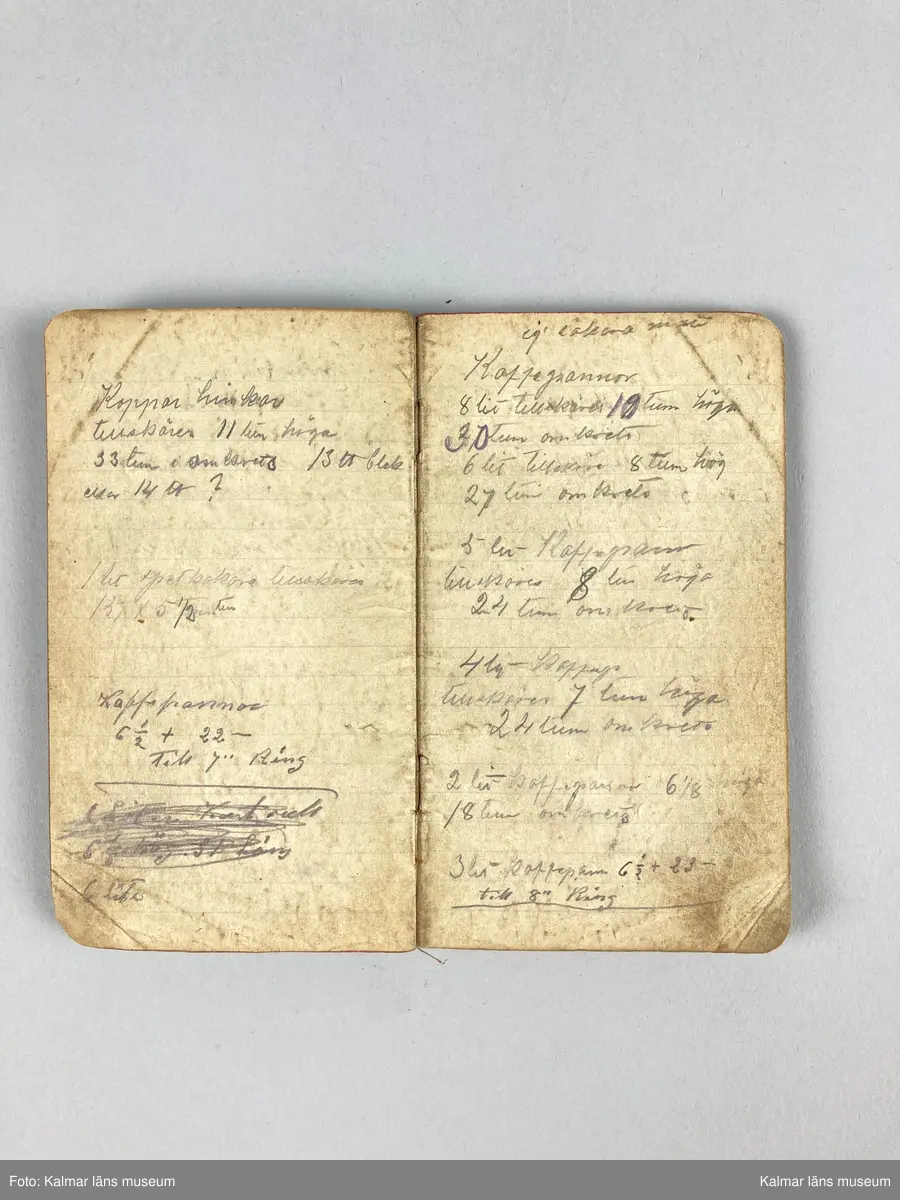 Koppar hinkar
tillskäres 11 tum höga
33 tum i omkrets 13 tt blek
eller 14 tt ?
1 lit tillskäres
15 x 5 1/2 tum
Kaffepannor
6 1/2 + 22 —
till 7" Ring
6 lite
Kaffepannor
8 lit tillskäres 10 tum höga
30 tum omkrets
6 lit tillskäres 8 tum hög
27 tum omkrets
5 lit Kaffepann
tillskäres 8 tum höga
24 tum omkrets
4 lit Kaffep
tillskäres 7 tum höga
24 tum omkrets
2 lit Kaffepannor 6 1/8 höga
18 tum omkrets
3 lit Kaffepann 6 1/2 + 23 —
till 8" Ring
Foto: Kalmar läns museum
Kalmar läns museum